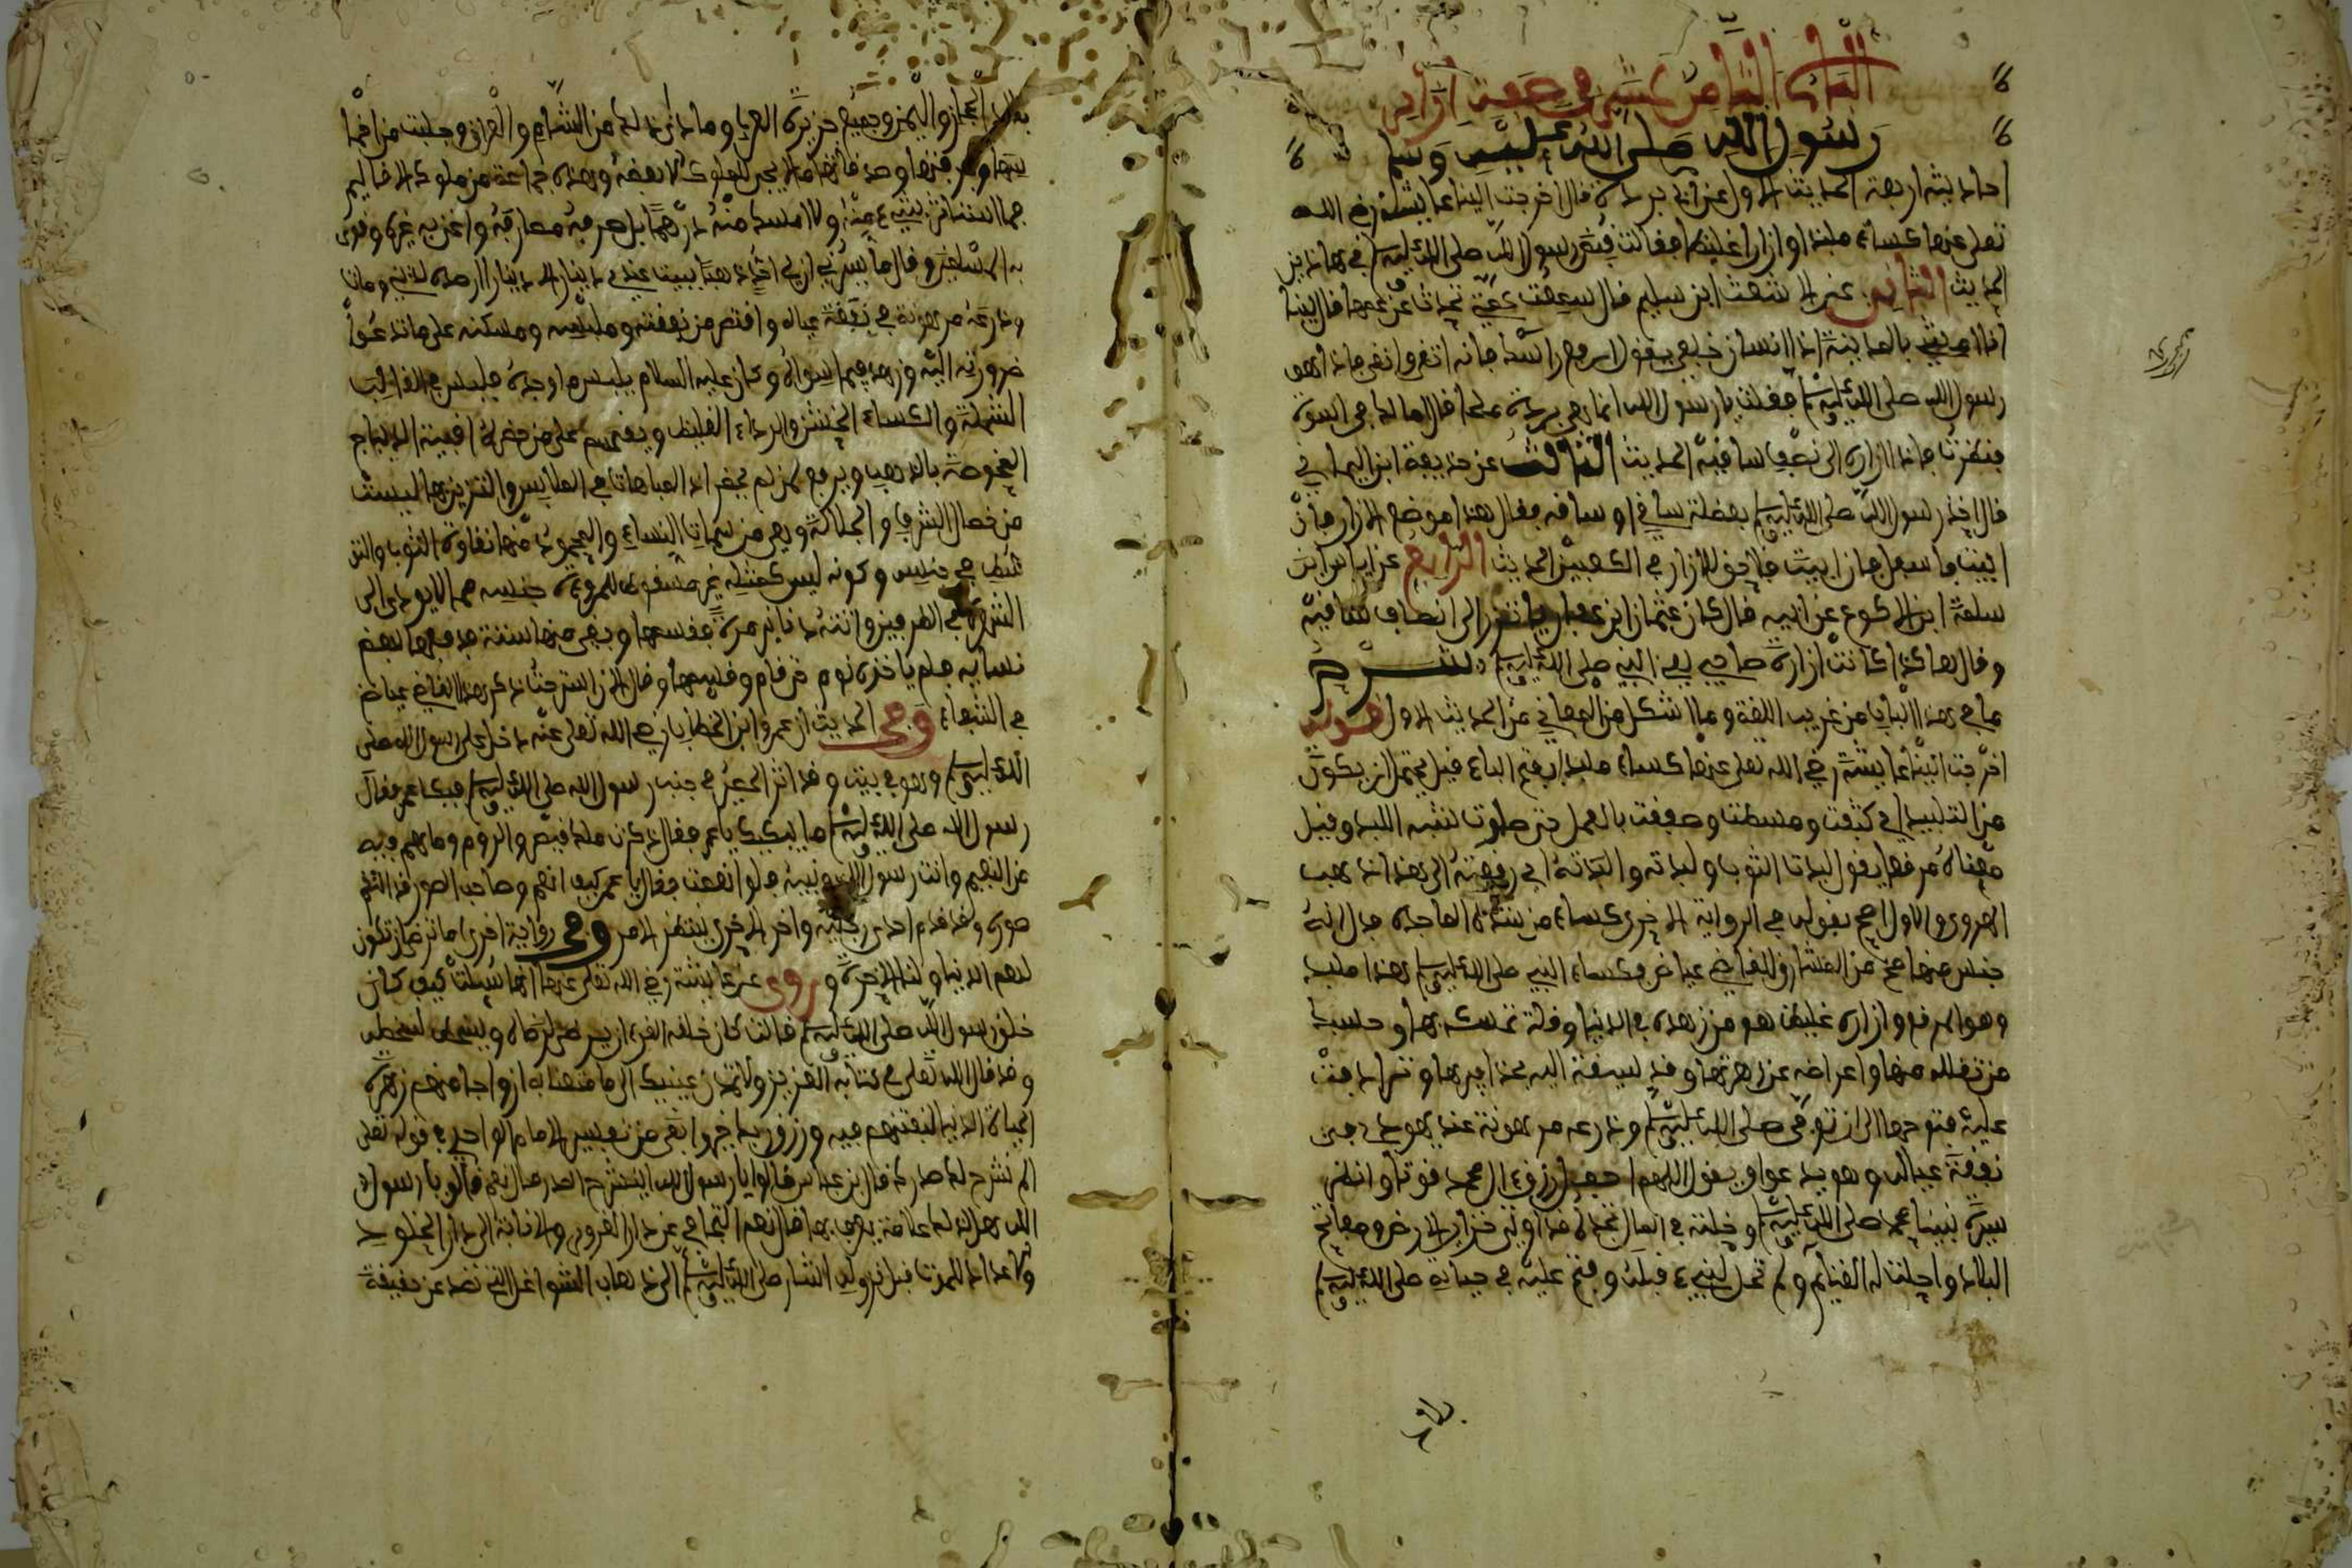 الباب الثامن عشر في صفة ازار
رسول الله صلى الله عليه وسلم
احاديثه اربعة الحديث الاول عن ابي بردة قال اخرجت الينا عايشة رضي الله
تعلى عنها كساء ملبدا وازارا غليظا فقالت قبض رسول الله صلى الله عليه وسلم في هاذين
الحديث الثاني عن الاشعث ابن سليم قال سمعت عمتي تحدث عن عمها قال بينا
انا امشي بالمدينة اذا انسان خلفي يقول ارفع ازارك فانه اتقى وانقى فاذا هو
رسول الله صلى الله عليه وسلم فقلت يا رسول الله انما هي بردة ملحا قال اما لك في اسوة
فنظرت فاذا ازاره الى نصف ساقيه الحديث الثالث عن حذيفة ابن اليماني
قال اخذ رسول الله صلى الله عليه وسلم بعضلة ساقي او ساقه فقال هذا موضع الازار فان
ابيت فاسفل فان ابيت فلا حق للازار في الكعبين الحديث الرابع عن اياس ابن
سلمة ابن الاكوع عن ابيه قال كان عثمان ابن عفان ياتزر الى انصاف ساقيه
وقال هاكذا كانت ازارة صاحبي يعني النبي صلى الله عليه وسلم شرح
ما في هذا الباب من غريب اللغة وما اشكل من المعاني فمن الحديث الاول قوله
اخرجت الينا عايشة رضي الله تعلى عنها كساء ملبدا بفتح الباء قيل يحتمل ان يكون
من التلبيد اي كثفت ومشطت وصفقت بالعمل حتى صارت تشبه اللبد وقيل
معناه مرقعا يقول لبدت الثوب ولبدته والبدته اي رقعته الى هذا ذهب
الهروي والاول اصح بقوله في الرواية الاخرى كساء من هذه الملبدة فدل انه
جنس منها صح من المشارق للقاضي عياض فكساء النبي صلى الله عليه وسلم هذا ملبد
وهو المرقع وازاره غليظ هو من زهده في الدنيا وقلة تمسكه بها وحسبك
من تقلله منها واعراضه عن زهرتها وقد سيقت اليه بحذافيرها وترادفت
عليه فتوحها الى ان توفي صلى الله عليه وسلم ودرعه مرهونة عند يهودي في
نفقة عياله وهو يدعوا ويقول اللهم اجعل رزق ءال محمد قوتا وانظر
سيرة نبينا محمد صلى الله عليه وسلم وخلقه في المال تجده قد اوتي خزاين الارض ومفاتح
البلاد واحلت له الغنايم ولم تحل لنبيء قبله وفتح عليه في حياته صلى الله عليه وسلم
بلاد الحجاز واليمن وجميع جزيرة العرب وما دانى ذلك من الشام والعراق وجلبت من اخما
سها وجزيتها وصدقاتها ما لا يجبى للملوك الا بعضه وهاده جماعة من ملوك الاقاليم
فما استاثر بشيء منه ولا امسك منه درهما بل صرفه مصارفه واغنى به غيره وقوى
به المسلمين وقال ما يسرني ان لي احدا ذهبا يبيت عندي دينار الا دينارا ارصده لديني ومات
ودرعه مرهونة في نفقة عياله واقتصر من نفقته وملبسه ومسكنه على ما تدعوا
ضرورته اليه وزهد فيما سواه وكان عليه السلام يلبس ما وجده فيلبس في الغالب
الشملة والكساء الخشن والبرد الغليظ ويقسم على من حضره اقبية الديباج
المخوصة بالذهب ويرفع لمن لم يحضر اذ المباهات في الملابس والتزين بها ليست
من خصال الشرف والجلالة وهي من سمات النساء والمحمود منها نقاوة الثوب والتو
سط في جنسه وكونه ليس كمثله غير مسقط لمروءة جنسه مما لا يودي الى
الشهرة في الطرفين واتته دنانير مرة فقسمها وبقي منها ستة فدفعها لبعض
نسايه فلم ياخذه نوم حتى قام وقسمها وقال الان استرحت ذكر هذا القاضي عياض
في الشفاء وفي الحديث ان عمر ابن الخطاب رضي الله تعلى عنه دخل على رسول الله صلى
الله عليه وسلم وهو في بيت وقد اثر الحصير في جنب رسول الله صلى الله عليه وسلم فبكا عمر فقال
رسول الله صلى الله عليه وسلم ما يبكيك يا عمر فقال ذكرت ملك قيصر والروم وما هم فيه
من النعيم وانت رسول الله ونبيه فلو انعمت فقال يا عمر كيف انعم وصاحب الصور قد التقم
صوره وقد قدم احدى رجليه واخر الاخرى ينتظر الامر وفي رواية اخرى اما ترضى ان تكون
لهم الدنيا ولنا الاخرة وروي عن عايشة رضي الله تعلى عنها انها سيلت كيف كان
خلق رسول الله صلى الله عليه وسلم قالت كان خلقه القرءان يرضى لرضاه ويسخط لسخطه
وقد قال الله تعلى في كتابه العزيز ولا تمدن عينيك الى ما متعنا به ازواجا منهم زهرة
الحياة الدنيا لنفتنهم فيه ورزق ربك خير وابقى من تفسير الامام الواحدي في قوله تعلى
الم نشرح لك صدرك قال ابن عباس قالوا يا رسول الله اينشرح الصدر قال نعم قالوا يا رسول
الله هل لذلك علامة يعرف بها قال نعم التجافي عن دار الغرور والانابة الى دار الخلود
والاعداد للموت قبل نزوله اشار صلى الله عليه وسلم الى ذهاب الشواغل التي تصد عن حقيقة